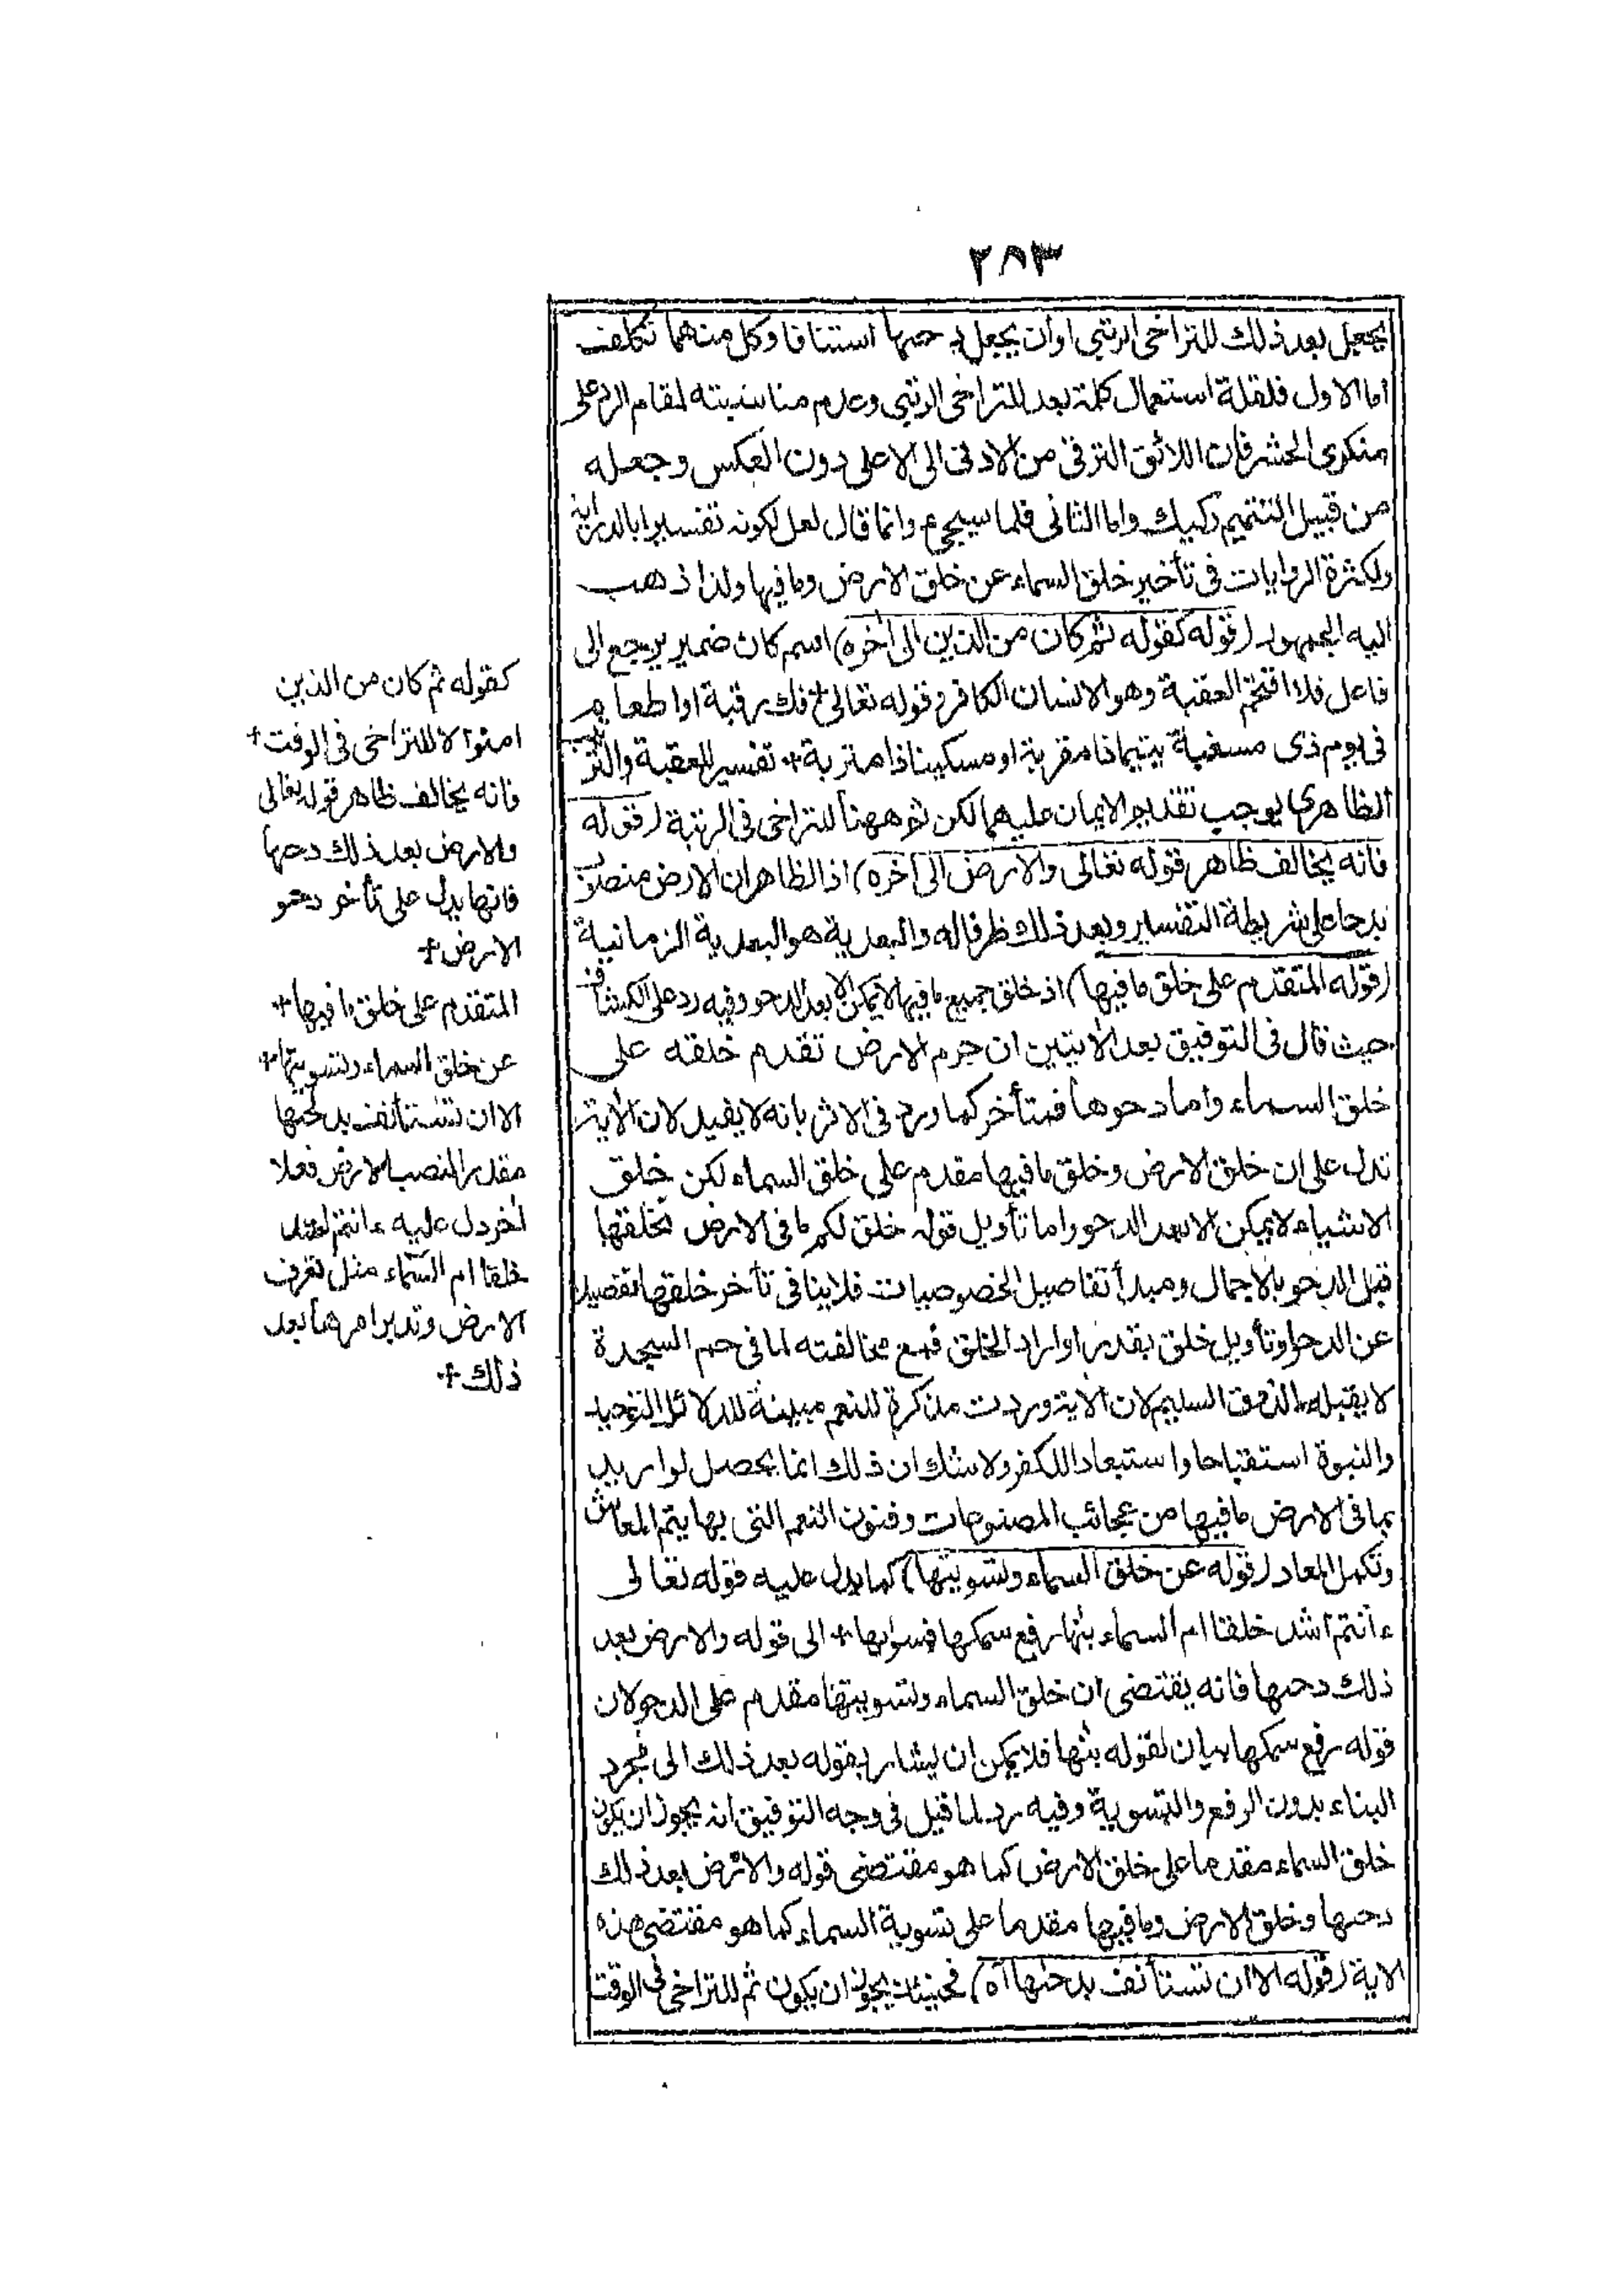 ٢٨٣
يجعل بعد ذلك للتراخى الرتبى او ان يجعل دحيها استئنافا وكل منهما تكلف
اما الاول فلقلة استعمال كلمة بعد للتراخى الرتبى وعدم مناسبته لمقام الرد على
منكرى الحشر فان اللائق الترقى من الادنى الى الاعلى دون العكس وجعله
من قبيل التتميم ركيك واما الثانى فلما سيجئ وانما قال لعل لكونه تفسيرا بالدراية
ولكثرة الروايات فى تأخير خلق السماء عن خلق الارض وما فيها ولذا ذهب
اليه الجمهور (قوله كقوله ثم كان من الذين الى اخره) اسم كان ضمير يرجع الى
فاعل فلا اقتحم العقبة وهو الانسان الكافر وقوله تعالى + فك رقبة او اطعام
فى يوم ذى مسغبة يتيما ذا مقربة او مسكينا ذا متربة + تفسير للعقبة والترتيب
الظاهرى يوجب تقديم الايمان عليهما لكن ثم ههنا للتراخى فى الرتبة (قوله
فانه يخالف ظاهر قوله تعالى والارض الى اخره) اذ الظاهر ان الارض منصوب
بدحا على شريطة التفسير وبعد ذلك ظرفا له والبعدية هو البعدية الزمانية
(قوله المتقدم على خلق ما فيها) اذ خلق جميع ما فيها لا يمكن الا بعد الدحو وفيه رد على الكشاف
حيث قال فى التوفيق بعد الايتين ان جرم الارض تقدم خلقه على
خلق السماء واما دحوها فمتأخر كما ورد فى الاثر بانه لا يفيد لان الاية
تدل على ان خلق الارض وخلق ما فيها مقدم على خلق السماء لكن خلق
الاشياء لا يمكن الا بعد الدحو واما تأويل قوله خلق لكم ما فى الارض بخلقها
قبل الدحو بالاجمال ومبدأ تفاصيل الخصوصيات فلا ينافى تأخر خلقها تفصيلا
عن الدحو او تأويل خلق بقدر او اراد الخلق فمع مخالفته لما فى حم السجدة
لا يقبله الذوق السليم لان الاية وردت مذكرة للنعم مبينة للدلائل التوحيد
والنبوة استقباحا واستبعادا للكفر ولا شك ان ذلك انما يحصل لو اريد
بما فى الارض ما فيها من عجائب المصنوعات وفنون النعم التى بها يتم المعاش
وتكمل المعاد (قوله عن خلق السماء وتسويتها) كما يدل عليه قوله تعالى
ءانتم اشد خلقا ام السماء بنها رفع سمكها فسواها + الى قوله والارض بعد
ذلك دحها فانه يقتضى ان خلق السماء وتسويتها مقدم على الدحو لان
قوله رفع سمكها بيان لقوله بنها فلا يمكن ان يشار بقوله بعد ذلك الى مجرد
البناء بدون الرفع والتسوية وفيه رد لما قيل فى وجه التوفيق انه يجوز ان يكون
خلق السماء مقدما على خلق الارض كما هو مقتضى قوله والارض بعد ذلك
دحها وخلق الارض وما فيها مقدما على تسوية السماء كما هو مقتضى هذه
الاية (قوله الا ان تستأنف بدحها آه) فحينئذ يجوز ان يكون ثم للتراخى فى الوقت
كقوله ثم كان من الذين
امنوا لا للتراخى فى الوقت +
فانه يخالف ظاهر قوله تعالى
والارض بعد ذلك دحها
فانها يدل على تأخر دحو
الارض +
المتقدم على خلق ما فيها +
عن خلق السماء وتسويتها +
الا ان تستأنف بدحيها
مقدرا لنصب الارض فعلا
اخر دل عليه ءانتم اشد
خلقا ام السماء مثل تعرف
الارض وتدبر امرها بعد
ذلك +